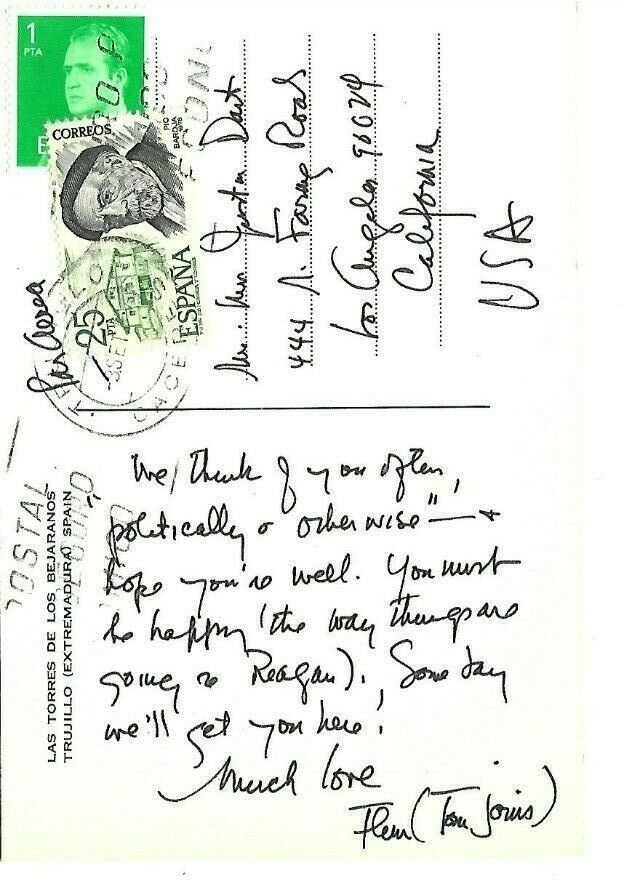 1
PTA
CORREOS
PIO
BAROJA
25
PTA
ESPAÑA
CACE
POSTAL
LAS TORRES DE LOS BEJARANOS
TRUJILLO (EXTREMADURA) SPAIN
Por Aerea
Dart
444 N. Faring Road
Los Angeles 90024
California
USA
We think of you often,
politically or otherwise" — +
hope you're well. You must
be happy (the way things are
going re Reagan). Some day
we'll get you here!
Much love
Fleur (Tom joins)